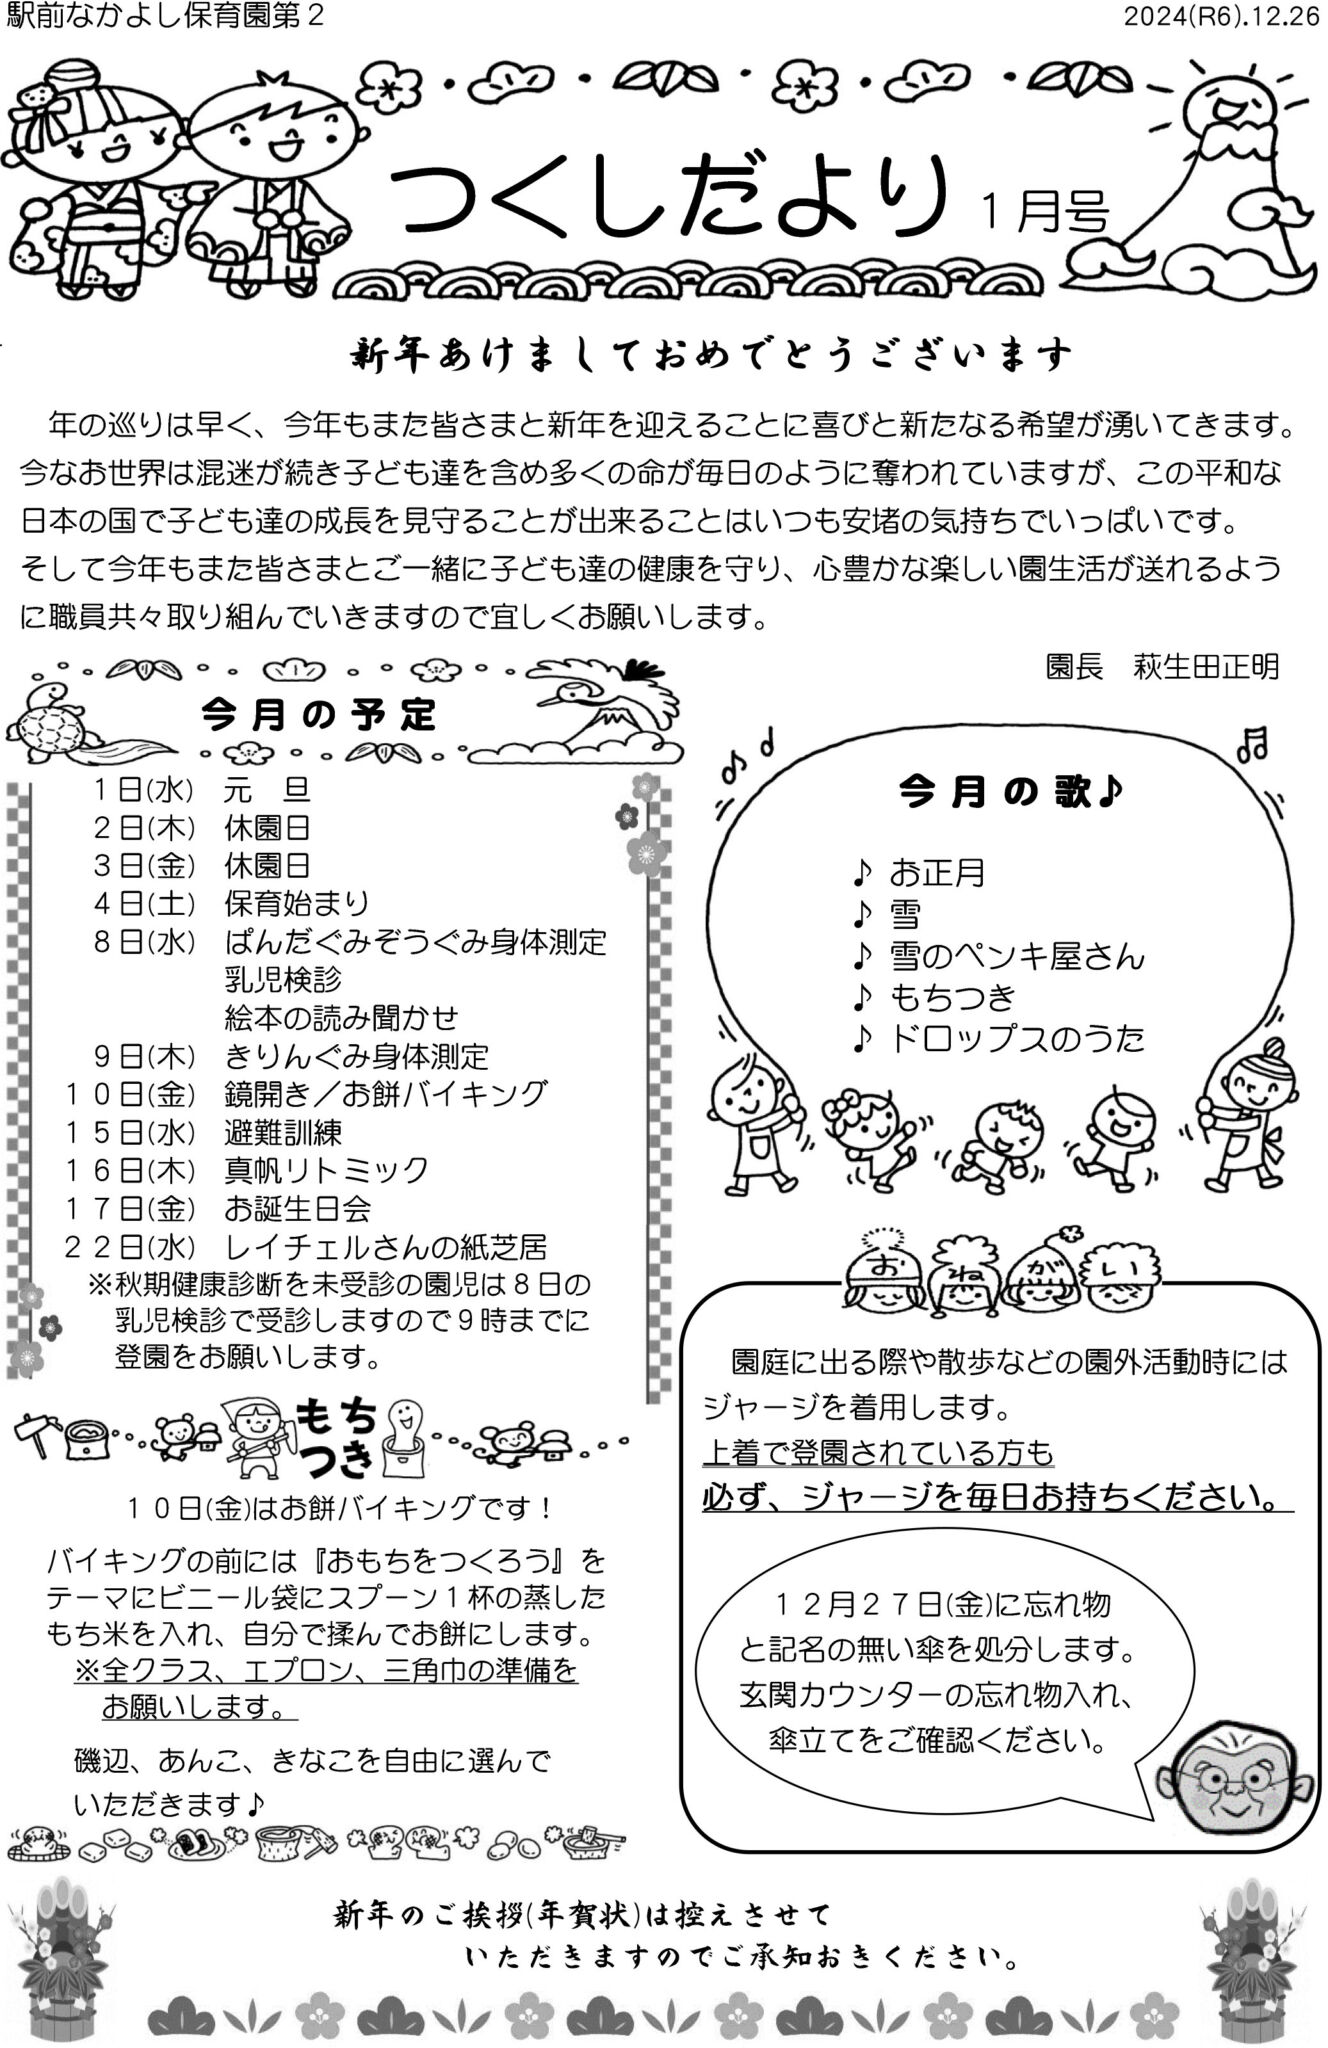 駅前なかよし保育園第２
2024(R6).12.26
つくしだより １月号
新年あけましておめでとうございます
年の巡りは早く、今年もまた皆さまと新年を迎えることに喜びと新たなる希望が湧いてきます。
今なお世界は混迷が続き子ども達を含め多くの命が毎日のように奪われていますが、この平和な
日本の国で子ども達の成長を見守ることが出来ることはいつも安堵の気持ちでいっぱいです。
そして今年もまた皆さまとご一緒に子ども達の健康を守り、心豊かな楽しい園生活が送れるよう
に職員共々取り組んでいきますので宜しくお願いします。
園長　萩生田正明
今月の予定
１日(水)　元　旦
２日(木)　休園日
３日(金)　休園日
４日(土)　保育始まり
８日(水)　ぱんだぐみぞうぐみ身体測定
乳児検診
絵本の読み聞かせ
９日(木)　きりんぐみ身体測定
１０日(金)　鏡開き／お餅バイキング
１５日(水)　避難訓練
１６日(木)　真帆リトミック
１７日(金)　お誕生日会
２２日(水)　レイチェルさんの紙芝居
※秋期健康診断を未受診の園児は８日の
乳児検診で受診しますので９時までに
登園をお願いします。
もち
つき
１０日(金)はお餅バイキングです！
バイキングの前には『おもちをつくろう』を
テーマにビニール袋にスプーン１杯の蒸した
もち米を入れ、自分で揉んでお餅にします。
※全クラス、エプロン、三角巾の準備を
お願いします。
磯辺、あんこ、きなこを自由に選んで
いただきます♪
今月の歌♪
♪ お正月
♪ 雪
♪ 雪のペンキ屋さん
♪ もちつき
♪ ドロップスのうた
おねがい
園庭に出る際や散歩などの園外活動時には
ジャージを着用します。
上着で登園されている方も
必ず、ジャージを毎日お持ちください。
１２月２７日(金)に忘れ物
と記名の無い傘を処分します。
玄関カウンターの忘れ物入れ、
傘立てをご確認ください。
新年のご挨拶(年賀状)は控えさせて
いただきますのでご承知おきください。